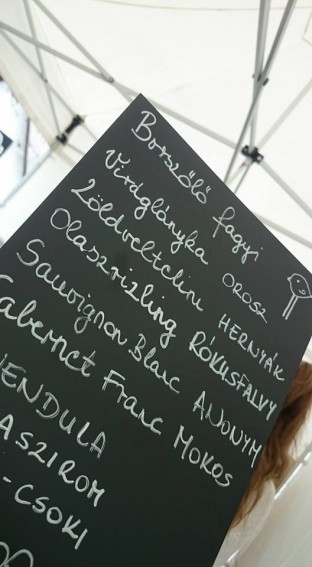 Borszőlő fagyi
Virágfányka OROSZ
Zöldveltelini HERNYÁK
Olaszrizling RÓKUSFALVY
Sauvignon Blanc ANONYM
Cabernet Franc MOKOS
ENDULA
ASZIROM
-CSOKI